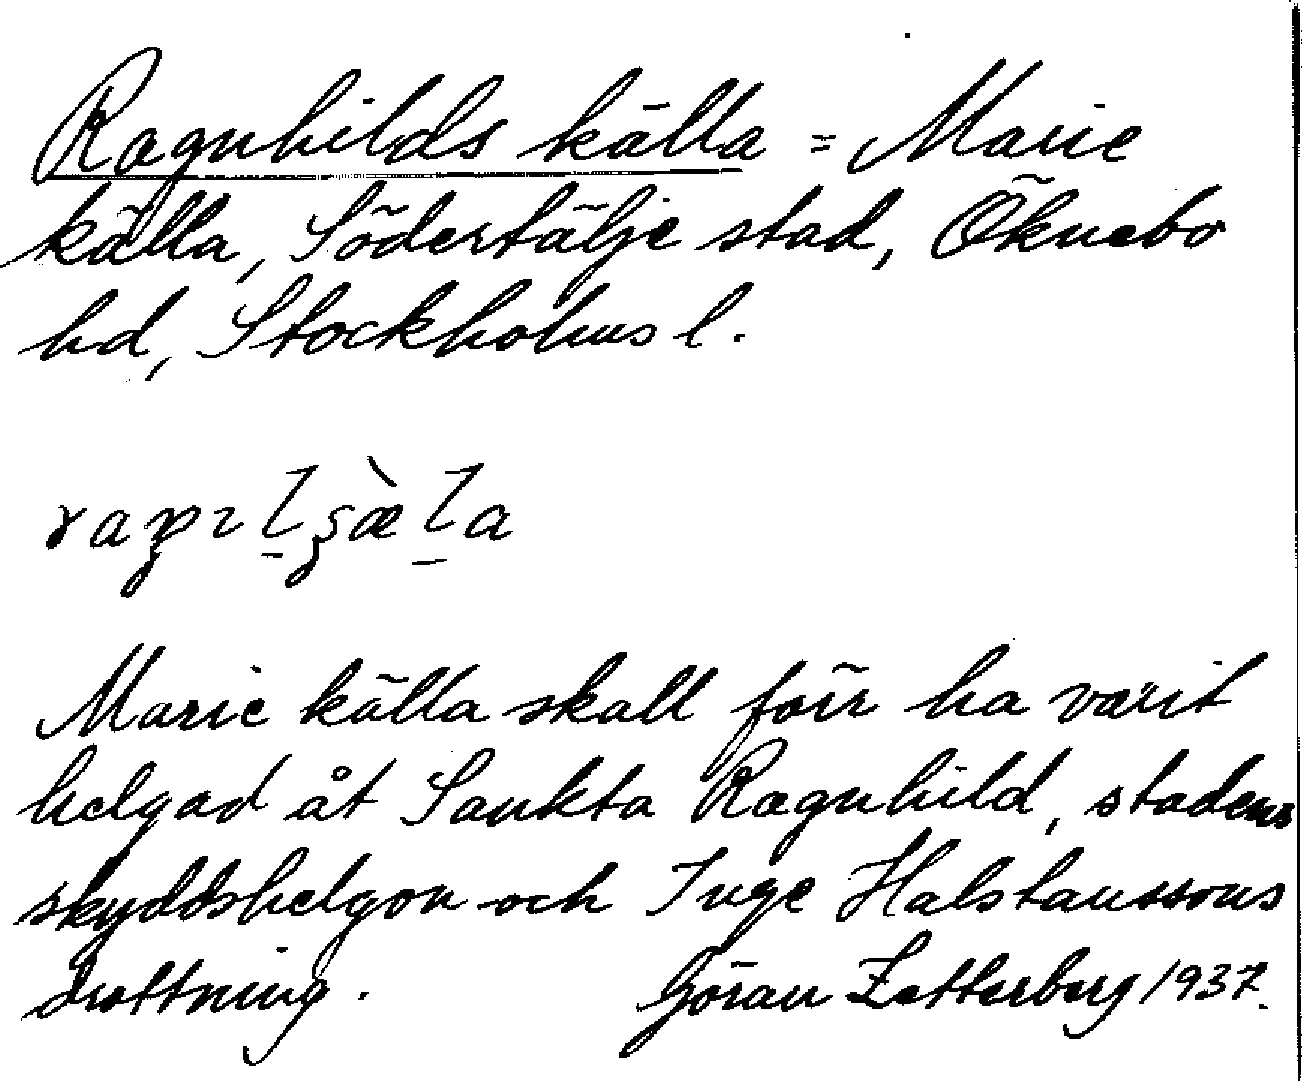 Ragnhilds källa = Marie
källa, Södertälje stad, Öknebo
hd, Stockholms l.
Marie källa skall förr ha varit
helgad åt Sankta Ragnhild, stadens
skyddshelgon och Inge Halstanssons
drottning. Göran Zetterberg 1937.